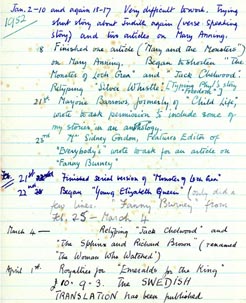 Jan. 2-10 and again 13-17 Very difficult to work. Trying
1952
short story about Judith again (verse speaking
story) and two articles on Mary Anning.
18 Finished one article ("Mary and the Monsters")
on Mary Anning. Began to shorten "The
Monster of Loch Gran" and "Jack Chelwood".
Retyping "Silver Whistle". [Typing Phyl's story
21st Marjorie Barrows, formerly of "Child Life",
wrote to ask permission to include some of
my stories in an anthology.
25th Sidney Golden, Features Editor of
"Everybody's" wrote to ask for an article on
"Fanny Burney"
Feb. 21st Finished serial version of "Monster of Loch Gran"
22nd Began "Young Elizabeth Green" (only did a
few lines. "Fanny Burney" from
Feb. 25 - March 4
March 4 — Retyping "Jack Chelwood" and
"The Sphinx and Richard Brown" (renamed
"The Woman Who Watched")
April 1st. Royalties for "Emeralds for the King"
£10-9-3. The SWEDISH
TRANSLATION has been published